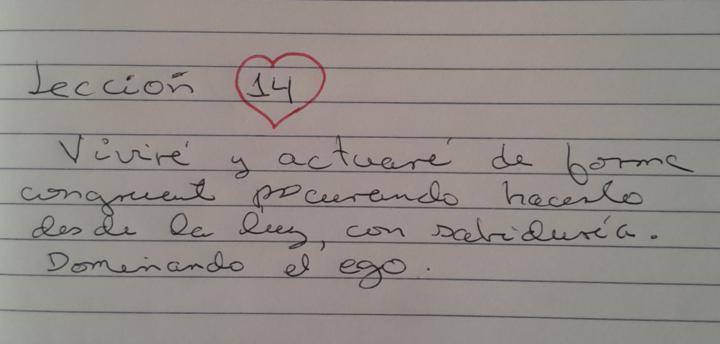 Lección 14
Viviré y actuaré de forma
congruent procurando hacerlo
desde la luz, con sabiduría.
Dominando el ego.